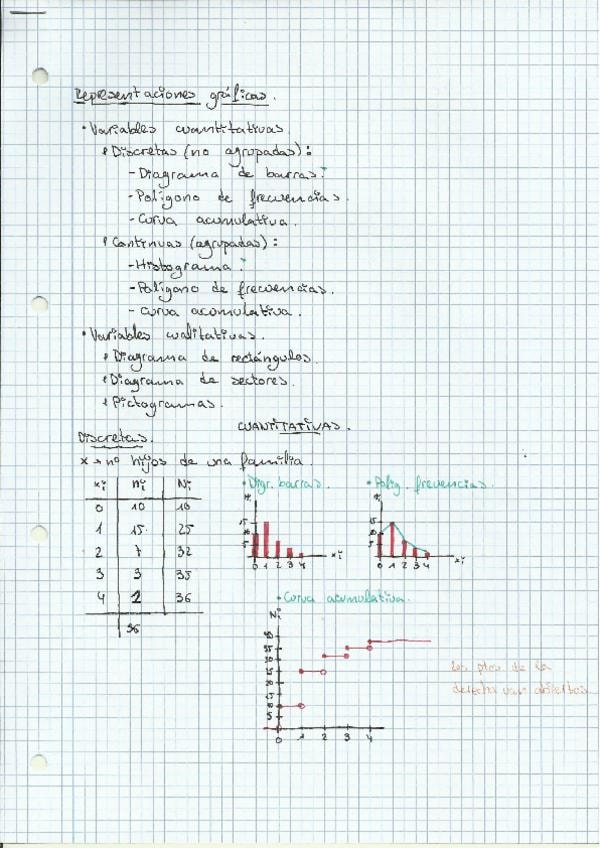 Representaciones gráficas.
• Variables cuantitativas
• Discretas (no agrupadas):
- Diagrama de barras.
- Polígono de frecuencias.
- Curva acumulativa.
• Continuas (agrupadas):
- Histograma.
- Polígono de frecuencias.
- Curva acumulativa.
• Variables cualitativas.
• Diagrama de rectángulos.
• Diagrama de sectores.
• Pictogramas.
CUANTITATIVAS.
Discretas.
x → nº hijos de una familia.
xi ni Ni
0 10 10
1 15 25
2 7 32
3 3 35
4 1 36
36
• Digr. barras.
15
10
5
0 1 2 3 4 xi
• Políg. frecuencias.
15
10
5
0 1 2 3 4 xi
• Curva acumulativa.
Ni
40
35
30
25
20
15
10
5
0 1 2 3 4
Los ptos de la
derecha van abiertos